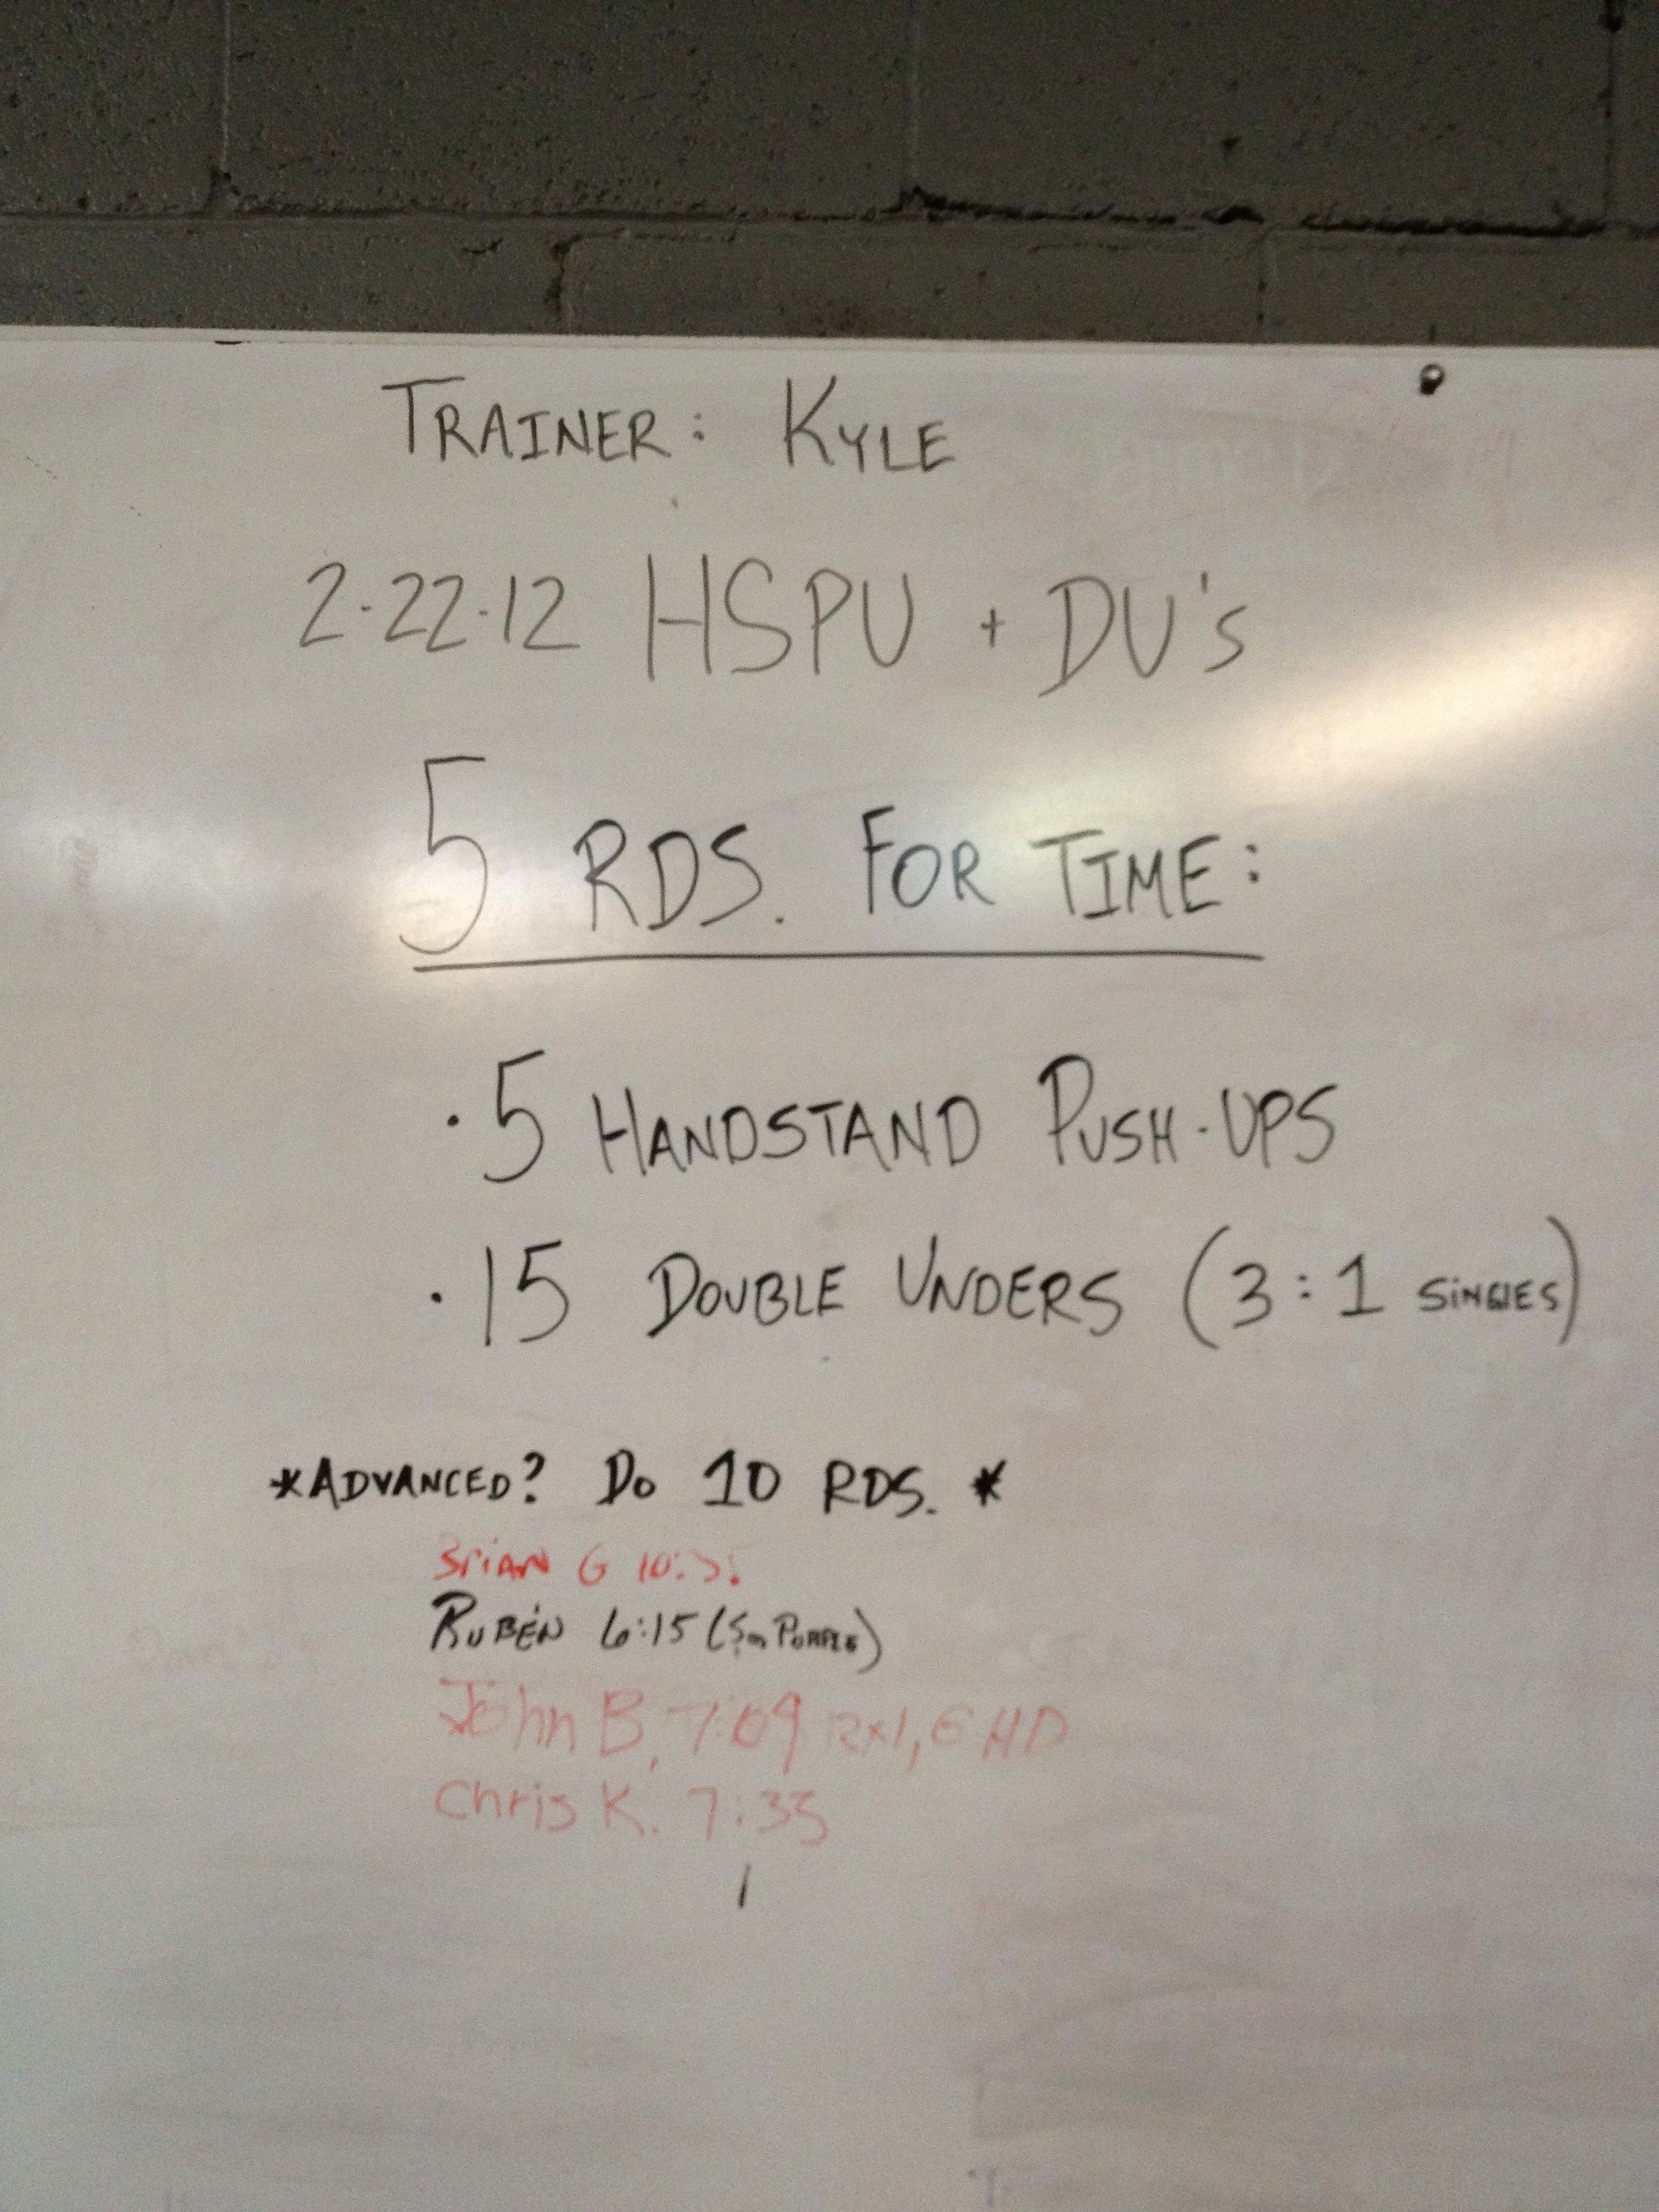 TRAINER: KYLE
2-22-12 HSPU + DU's
5 RDS. FOR TIME:
· 5 HANDSTAND PUSH-UPS
· 15 DOUBLE UNDERS (3:1 SINGLES)
*ADVANCED? DO 10 RDS. *
BRIAN G
RUBÉN 6:15 (Sm PURPLE)
John B, 7:09
Chris K. 7:33